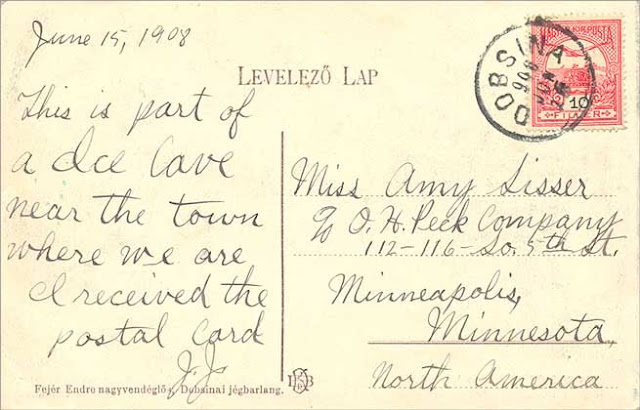 June 15, 1908
LEVELEZŐ LAP
DOBSINA
908
10
FILLÉR
This is part of
a Ice Cave
near the town
where we are
I received the
postal card
J.J.
Miss Amy Lisser
c/o O. H. Peck Company
112-116-So. 5th St.
Minneapolis,
Minnesota,
North America
Fejér Endre nagyvendéglős, Dobsinai jégbarlang.